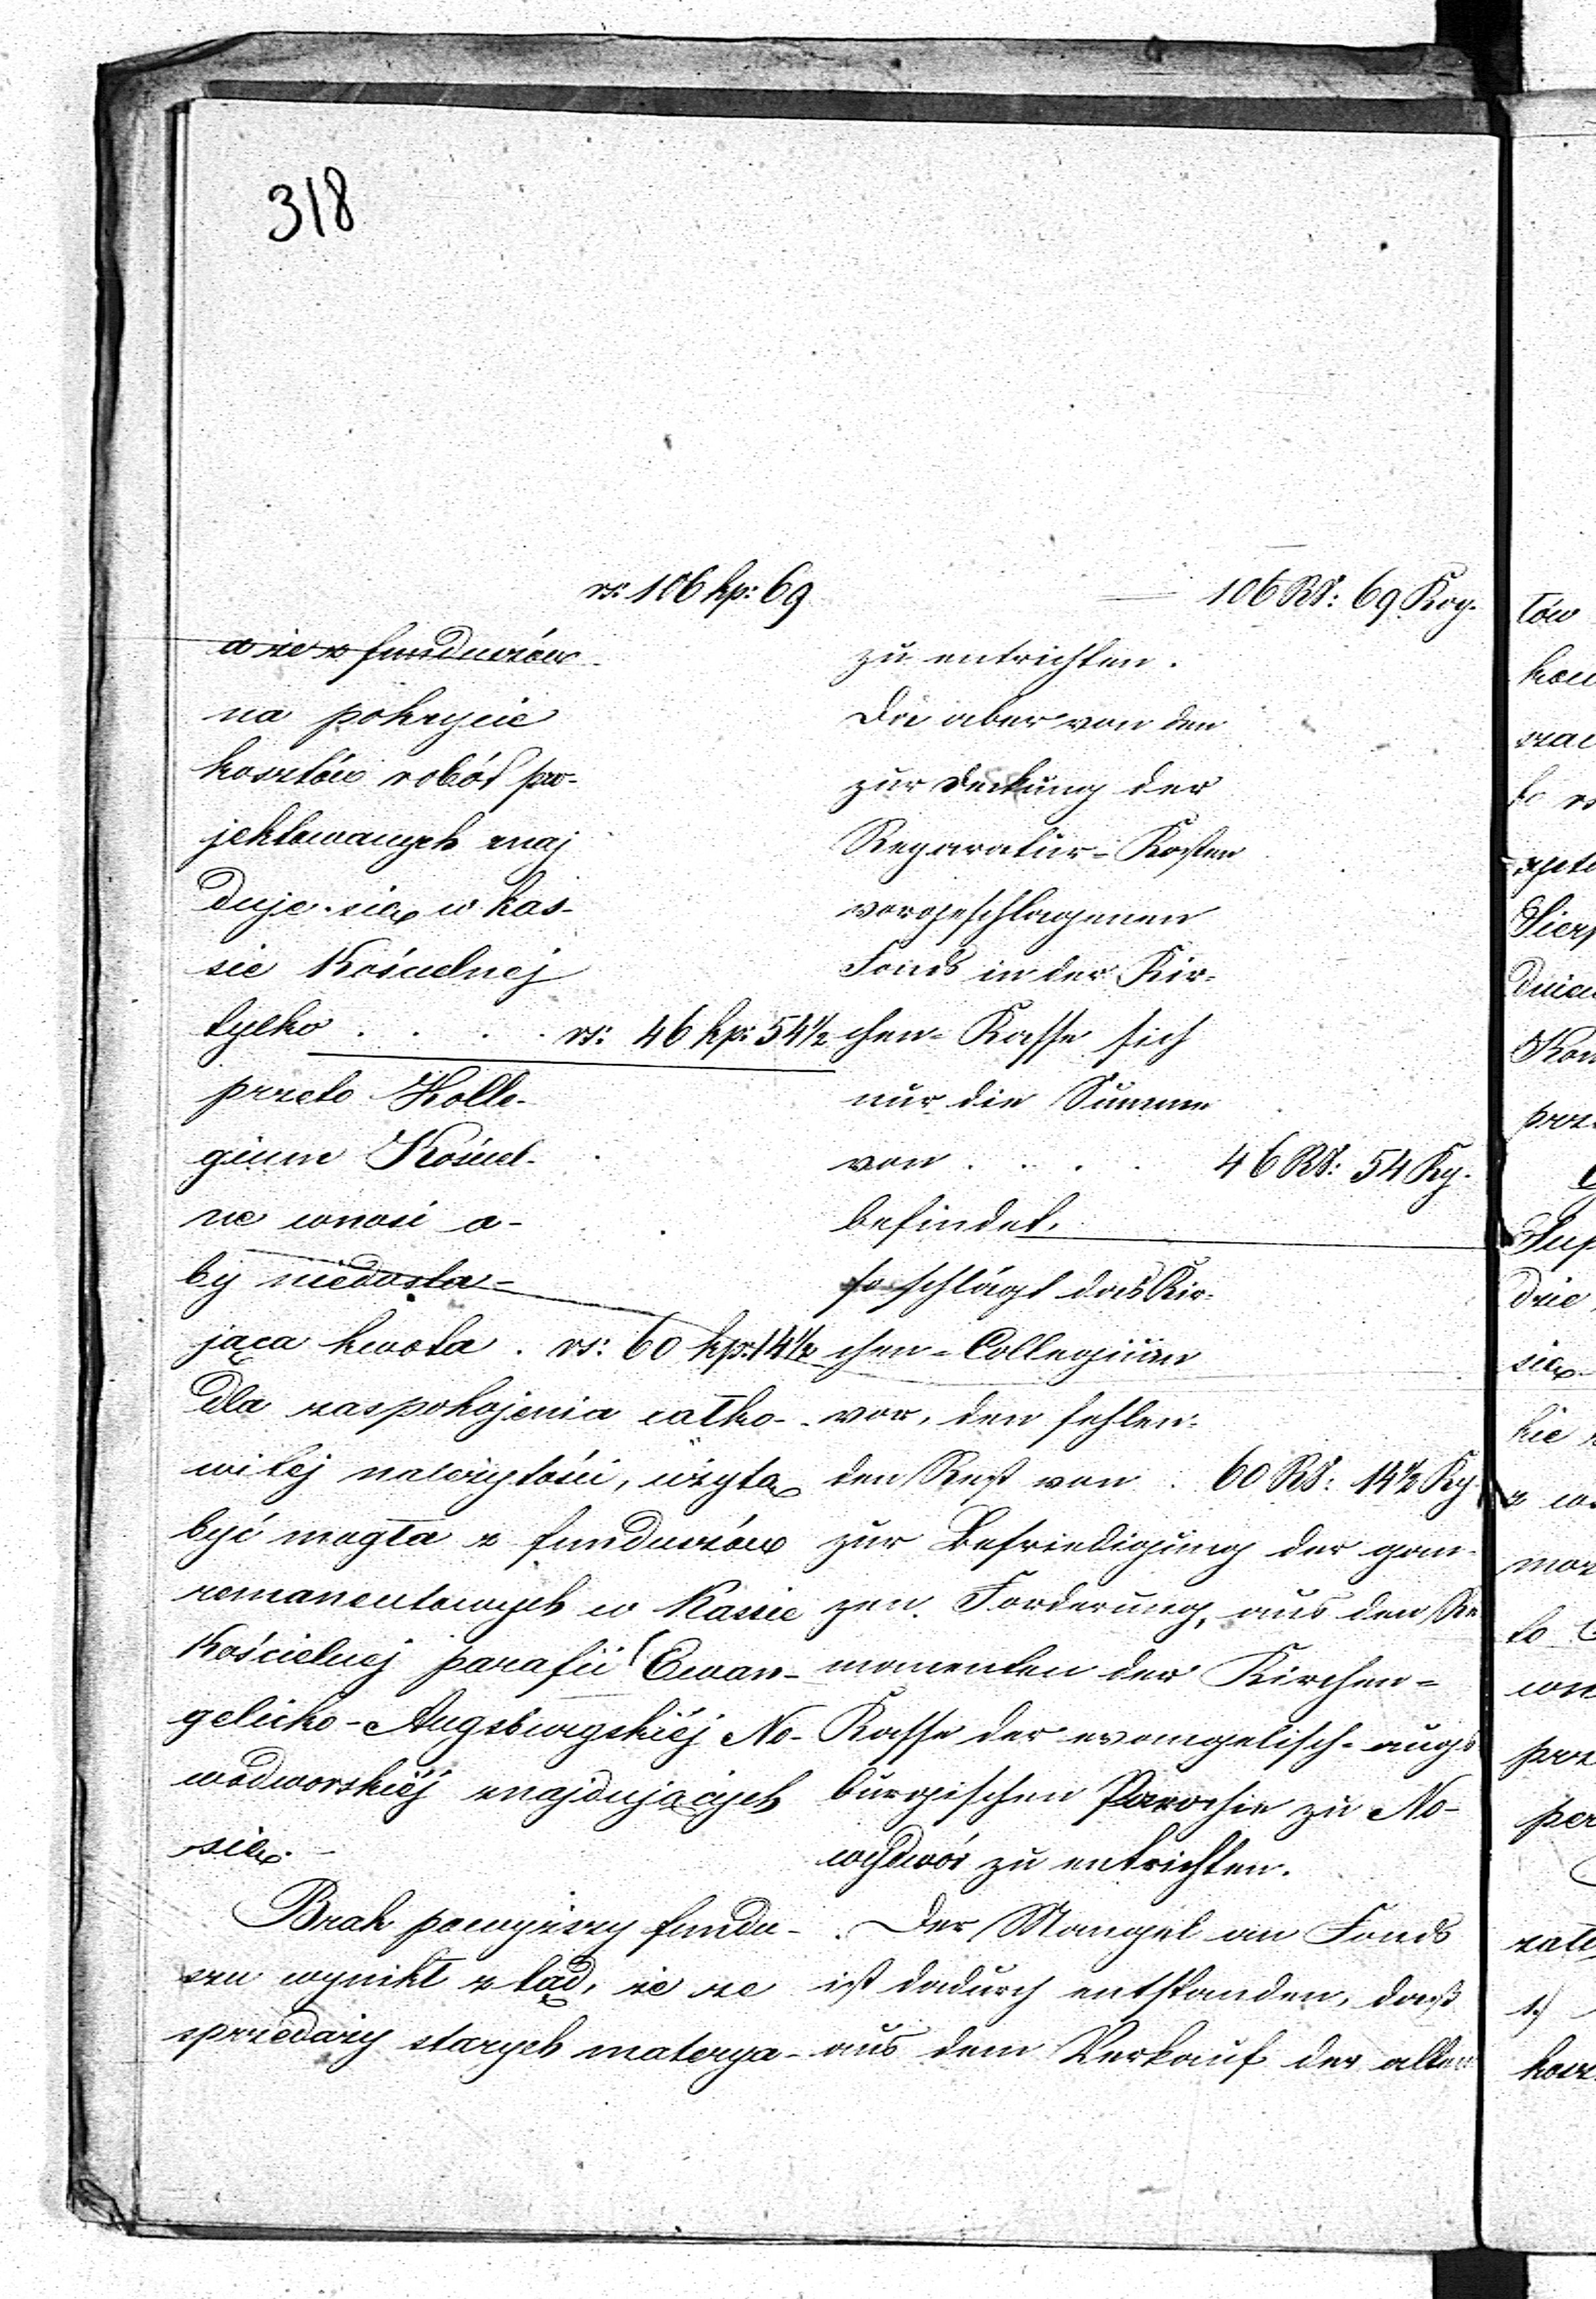 318
rs: 106 kp: 69
a że z funduszów
na pokrycie
kosztów robót pro-
jektowanych znaj
duje się w kas-
sie Kościelnej
tylko . . . . rs: 46 kp: 54½
przeto Kolle-
gium Kościel-
ne wnosi a-
by niedosta-
jąca kwota . rs: 60 kp: 14½
dla zaspokojenia całko-
witej należytości, użytą
być mogła z funduszów
remanentowych w Kassie
Kościelnej parafii Ewan-
gelicko-Augsburgskiéj No-
wodworskiéj znajdujących
się.-
Brak powyższy fundu-
szu wynikł ztąd, że ze
sprzedaży starych materya-
106 RS: 69 Kop.
zu entrichten.
Da aber von den
zur Deckung der
Reparatur-Kosten
vorgeschlagenen
Fonds in der Kir-
chen-Kasse sich
nur die Summe
von . . . . 46 RS: 54 Kp.
befindet,
so schlägt das Kir-
chen-Collegium
vor, den fehlen-
den Rest von . 60 RS: 14½ Kp
zur Befriedigung der gan-
zen Forderung, aus den Re
manenten der Kirchen-
Kasse der evangelisch-augs
burgischen Parochie zu No-
wydwór zu entrichten.
Der Mangel an Fonds
ist dadurch entstanden, daß
aus dem Verkauf der alten